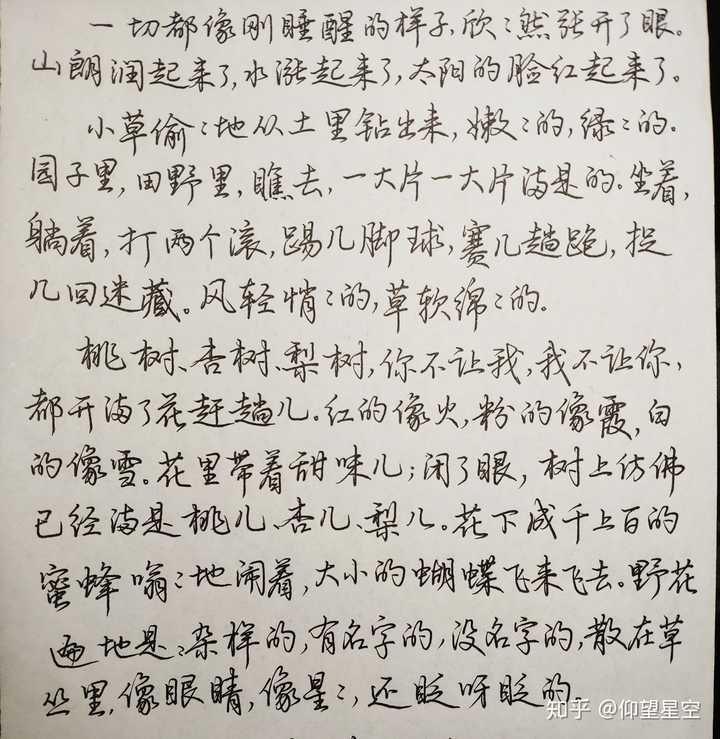 一切都像刚睡醒的样子,欣〻然张开了眼。
山朗润起来了,水涨起来了,太阳的脸红起来了。
小草偷〻地从土里钻出来,嫩〻的,绿〻的。
园子里,田野里,瞧去,一大片一大片满是的。坐着,
躺着,打两个滚,踢几脚球,赛几趟跑,捉
几回迷藏。风轻悄〻的,草软绵〻的。
桃树、杏树、梨树,你不让我,我不让你,
都开满了花赶趟儿。红的像火,粉的像霞,白
的像雪。花里带着甜味儿;闭了眼,树上仿佛
已经满是桃儿、杏儿、梨儿。花下成千上百的
蜜蜂嗡〻地闹着,大小的蝴蝶飞来飞去。野花
遍地是:杂样的,有名字的,没名字的,散在草
丛里,像眼睛,像星〻,还眨呀眨的。
知乎 @仰望星空